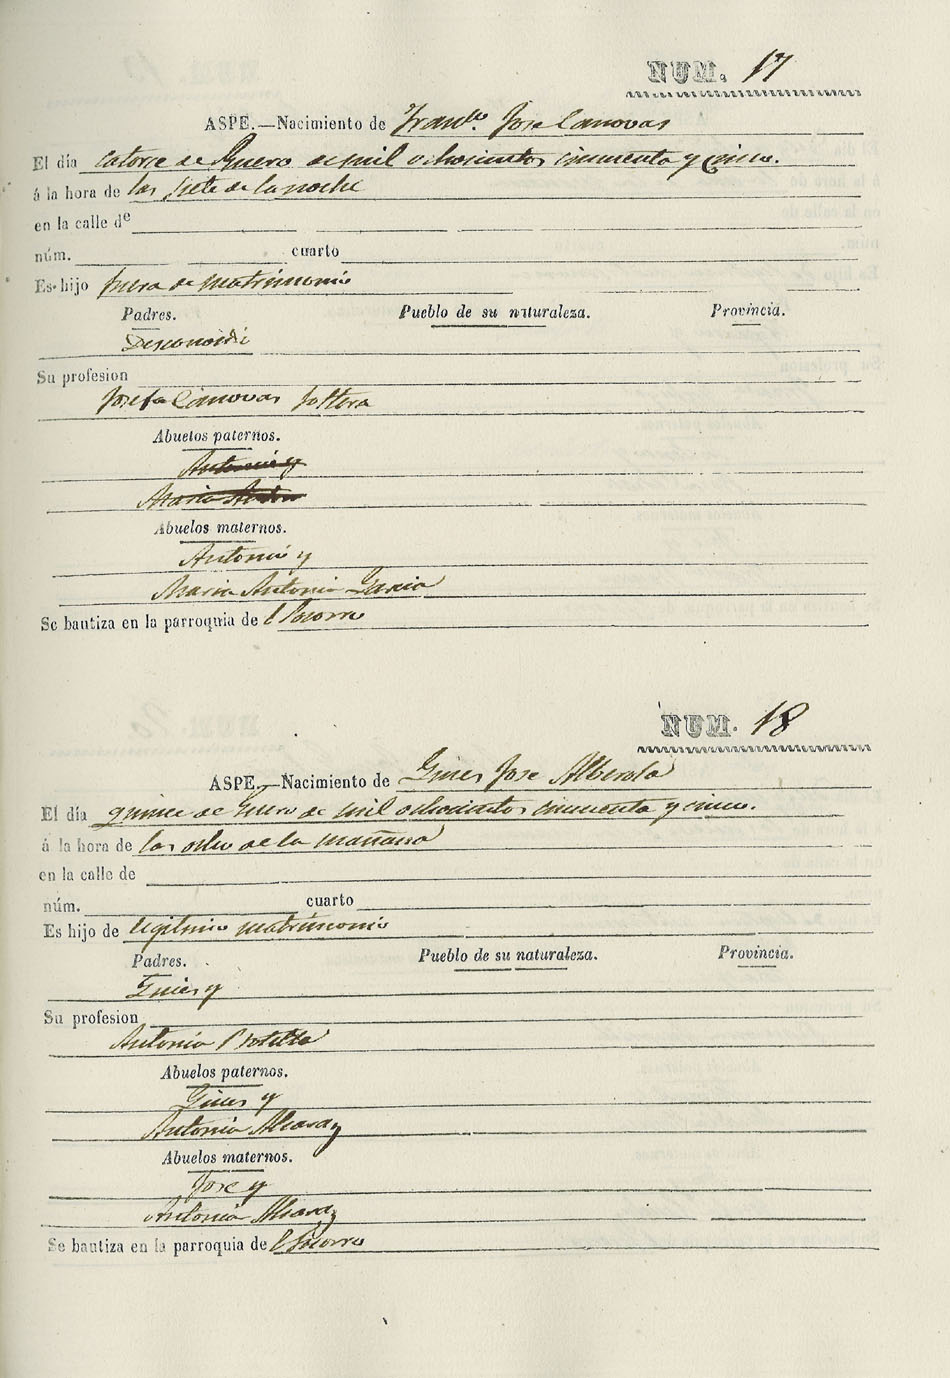 NUM. 17
ASPE.—Nacimiento de Franco. Jose Canovas
El día catorse de Enero de mil ochosientos cincuenta y cinco.
á la hora de las siete de la noche
en la calle de
núm. cuarto
Es hijo fuera de matrimonio
Padres. Pueblo de su naturaleza. Provincia.
Desconosido
Su profesion
Josefa Canovas soltera
Abuelos paternos.
Antonio y
Maria
Abuelos maternos.
Antonio y
Maria Antonia Garcia
Se bautiza en la parroquia de el Socorro
NUM. 18
ASPE.—Nacimiento de Gines Jose Alberola
El día quince de Enero de mil ochocientos cincuenta y cinco.
á la hora de las ocho de la mañana
en la calle de
núm. cuarto
Es hijo de legitimo matrimonio
Padres. Pueblo de su naturaleza. Provincia.
Gines y
Su profesion
Antonia
Abuelos paternos.
Gines y
Antonia Alcaraz
Abuelos maternos.
Jose y
Antonia Alcaraz
Se bautiza en la parroquia de el Socorro